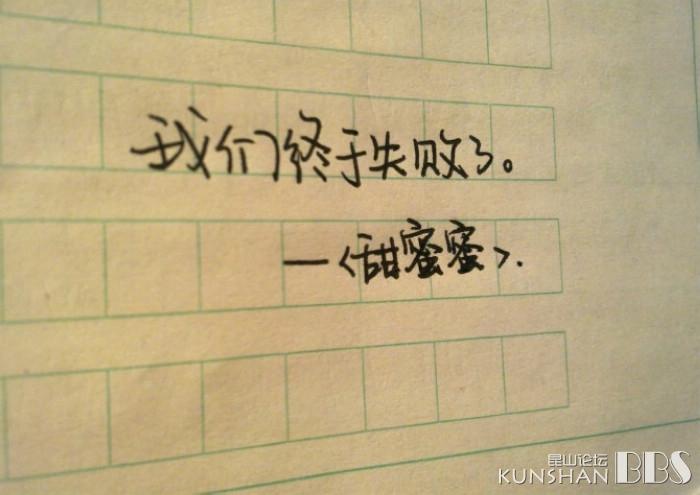 我们终于失败了。
—<甜蜜蜜>.
昆山论坛
KUNSHAN BBS